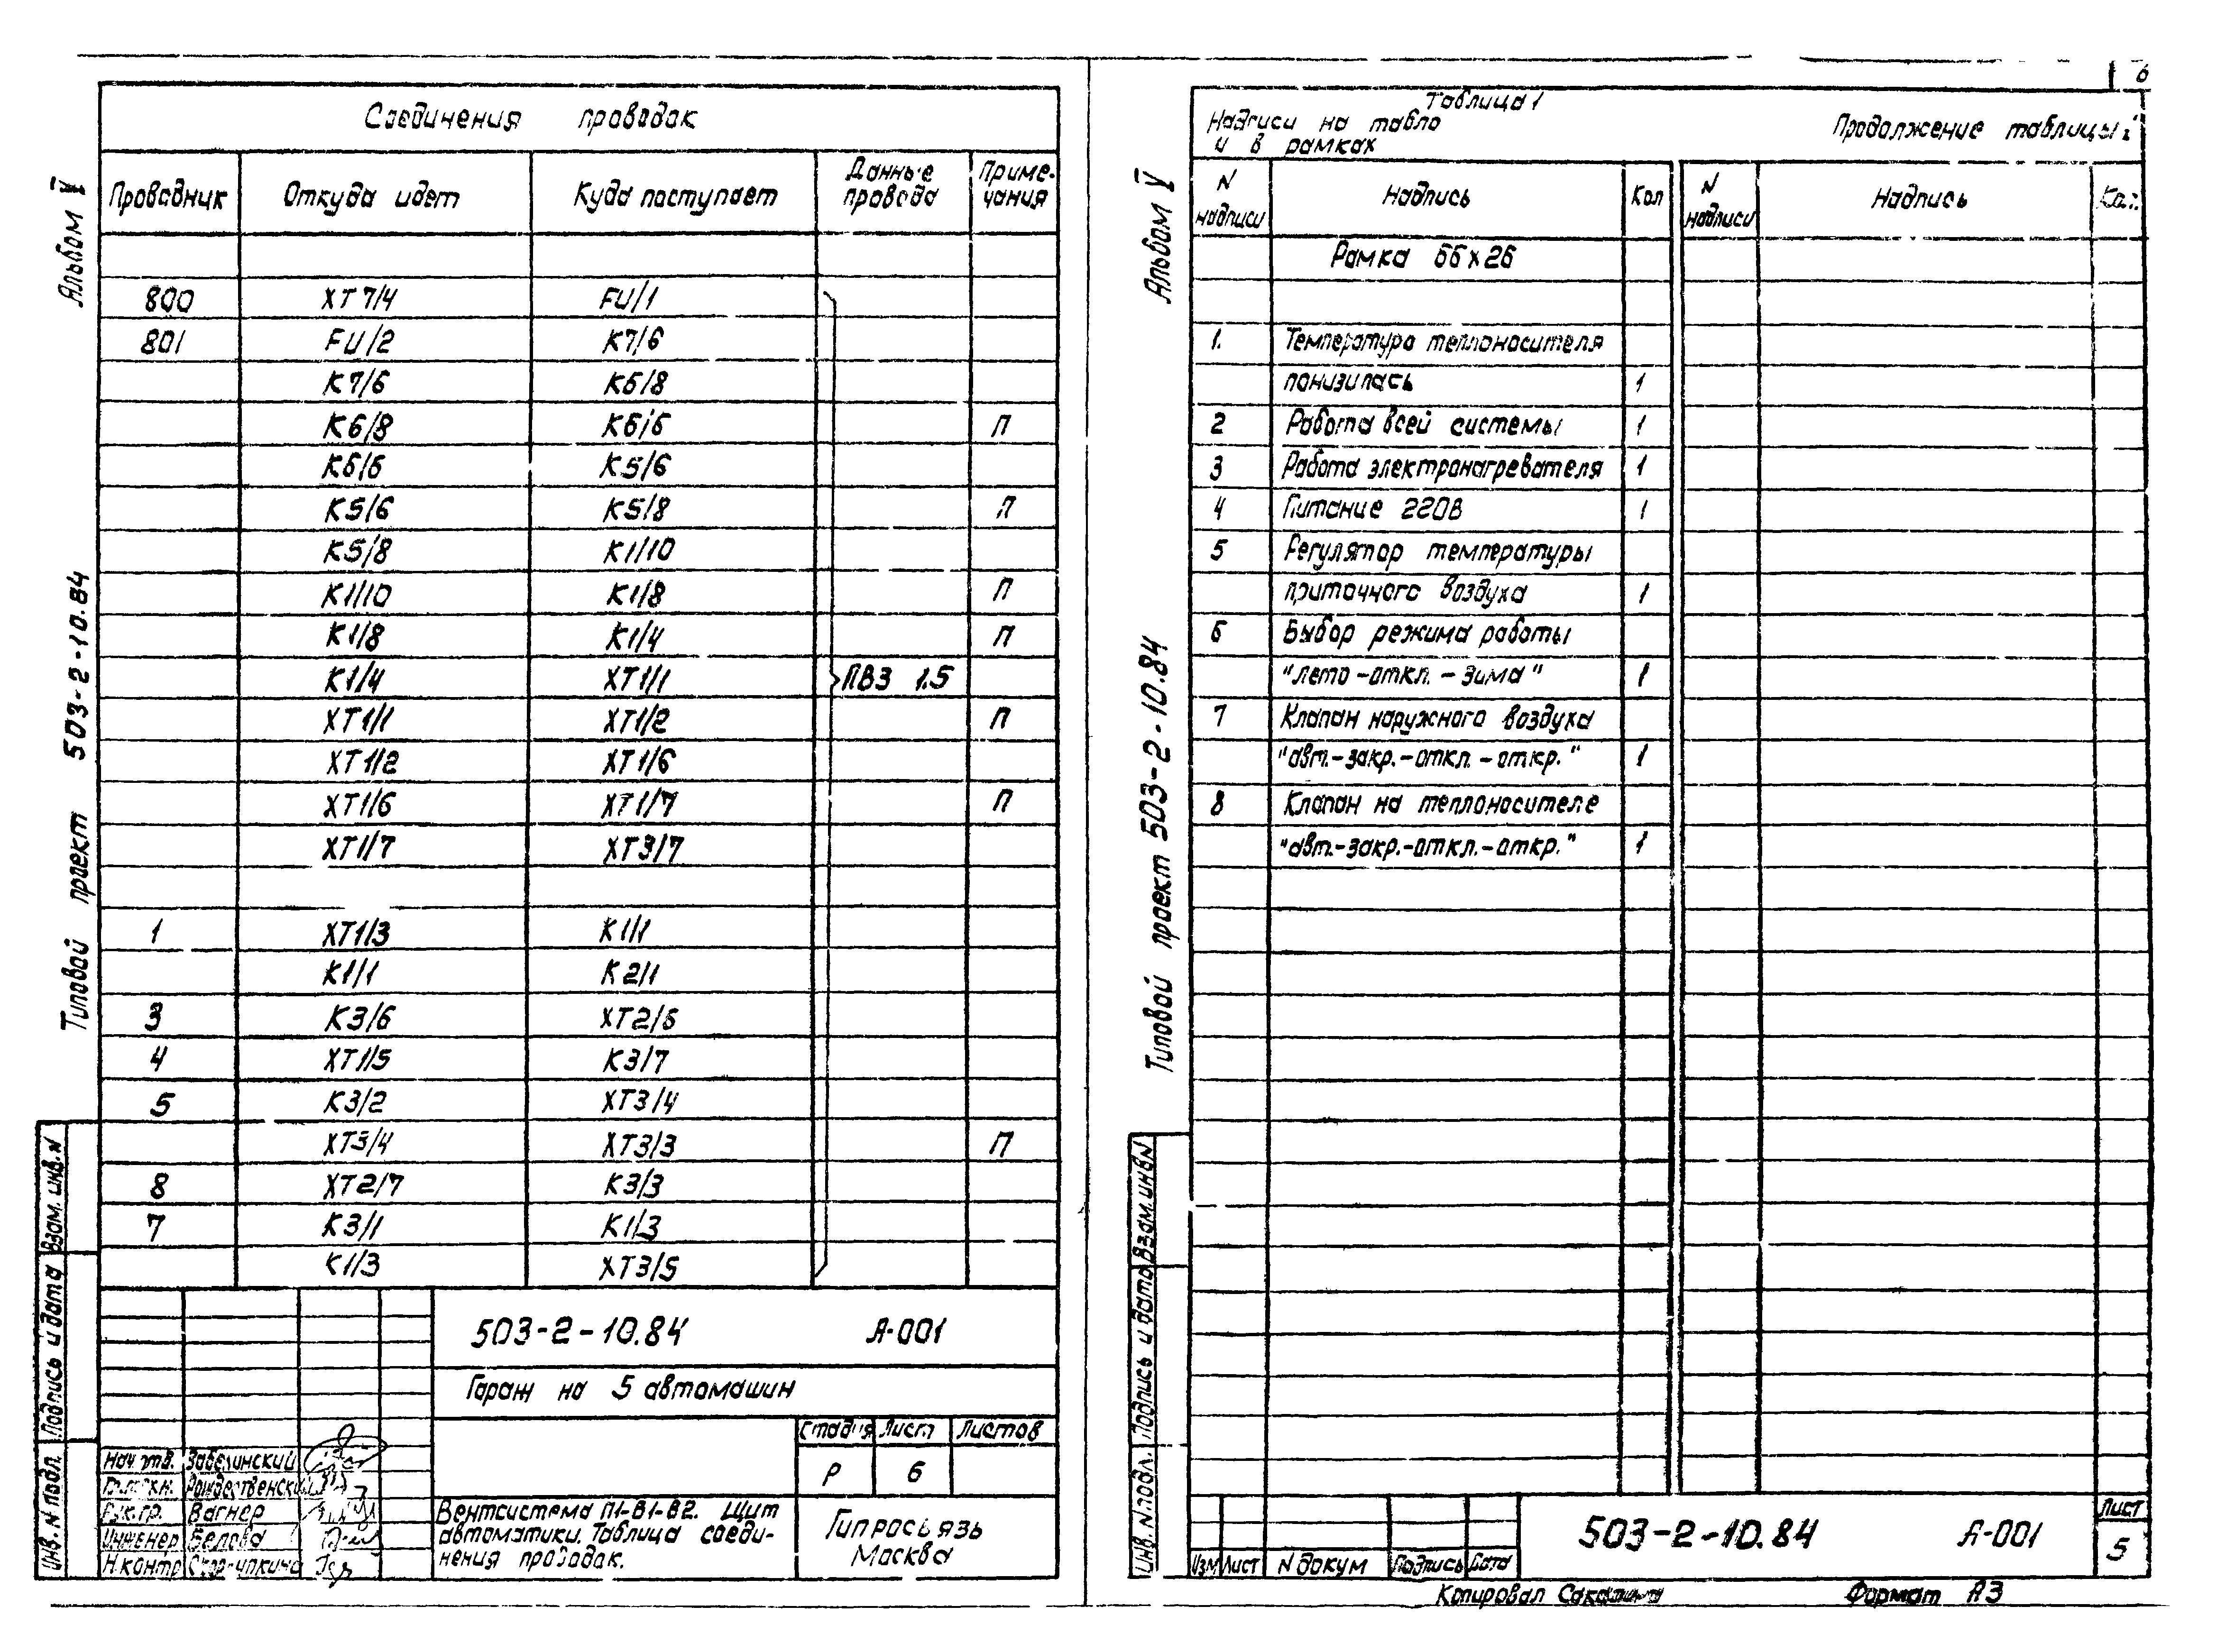 6
Альбом V
Типовой проект 503-2-10.84
Соединения проводок
Проводник Откуда идет Куда поступает Данные провода Примечания
800 XT7/4 FU/1
801 FU/2 K7/6
K7/6 K6/8
K6/8 K6/6 П
K6/6 K5/6
K5/6 K5/8 П
K5/8 K1/10
K1/10 K1/8 П
K1/8 K1/4 П
K1/4 XT1/1 ПВ3 1.5
XT1/1 XT1/2 П
XT1/2 XT1/6
XT1/6 XT1/7 П
XT1/7 XT3/7
1 XT1/3 K1/1
K1/1 K2/1
3 K3/6 XT2/6
4 XT1/5 K3/7
5 K3/2 XT3/4
XT3/4 XT3/3 П
8 XT2/7 K3/3
7 K3/1 K1/3
K1/3 XT3/5
Инв. N подл. Подпись и дата Взам. инв. N
503-2-10.84 А-001
Гараж на 5 автомашин
Стадия Лист Листов
Р 6
Нач. отд. Забелинский
Рождественский
Рук. гр. Вагнер
Инженер Белова
Н. контр
Вентсистема П1-В1-В2. Щит
автоматики. Таблица соеди-
нения проводок.
Гипросвязь
Москва
Альбом V
Типовой проект 503-2-10.84
Таблица 1
Надписи на табло
и в рамках
Продолжение таблицы
N надписи Надпись Кол N надписи Надпись Кол.
Рамка 66x26
1. Температура теплоносителя
понизилась 1
2 Работа всей системы 1
3 Работа электронагревателя 1
4 Питание 220В 1
5 Регулятор температуры
приточного воздуха 1
6 Выбор режима работы
"лето-откл.-зима" 1
7 Клапан наружного воздуха
"авт.-закр.-откл.-откр." 1
8 Клапан на теплоносителе
"авт.-закр.-откл.-откр." 1
Инв. N подл. Подпись и дата Взам. инв N
Изм Лист N докум Подпись Дата
503-2-10.84 А-001
Лист
5
Копировал
Формат А3